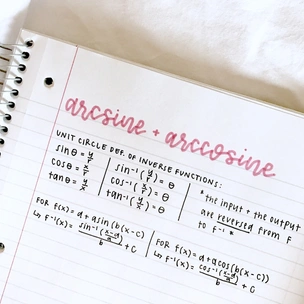 arcsine + arccosine
UNIT CIRCLE DEF. OF INVERSE FUNCTIONS:
sinθ = y/r
cosθ = x/r
tanθ = y/x
sin⁻¹(y/r) = θ
cos⁻¹(x/r) = θ
tan⁻¹(y/x) = θ
* the input + the output
are reversed from f
to f⁻¹ *
FOR f(x) = a + a sin(b(x-c))
↳ f⁻¹(x) = sin⁻¹((x-d)/a)/b + c
FOR f(x) = d + a cos(b(x-c))
↳ f⁻¹(x) = cos⁻¹((x-d)/a)/b + c